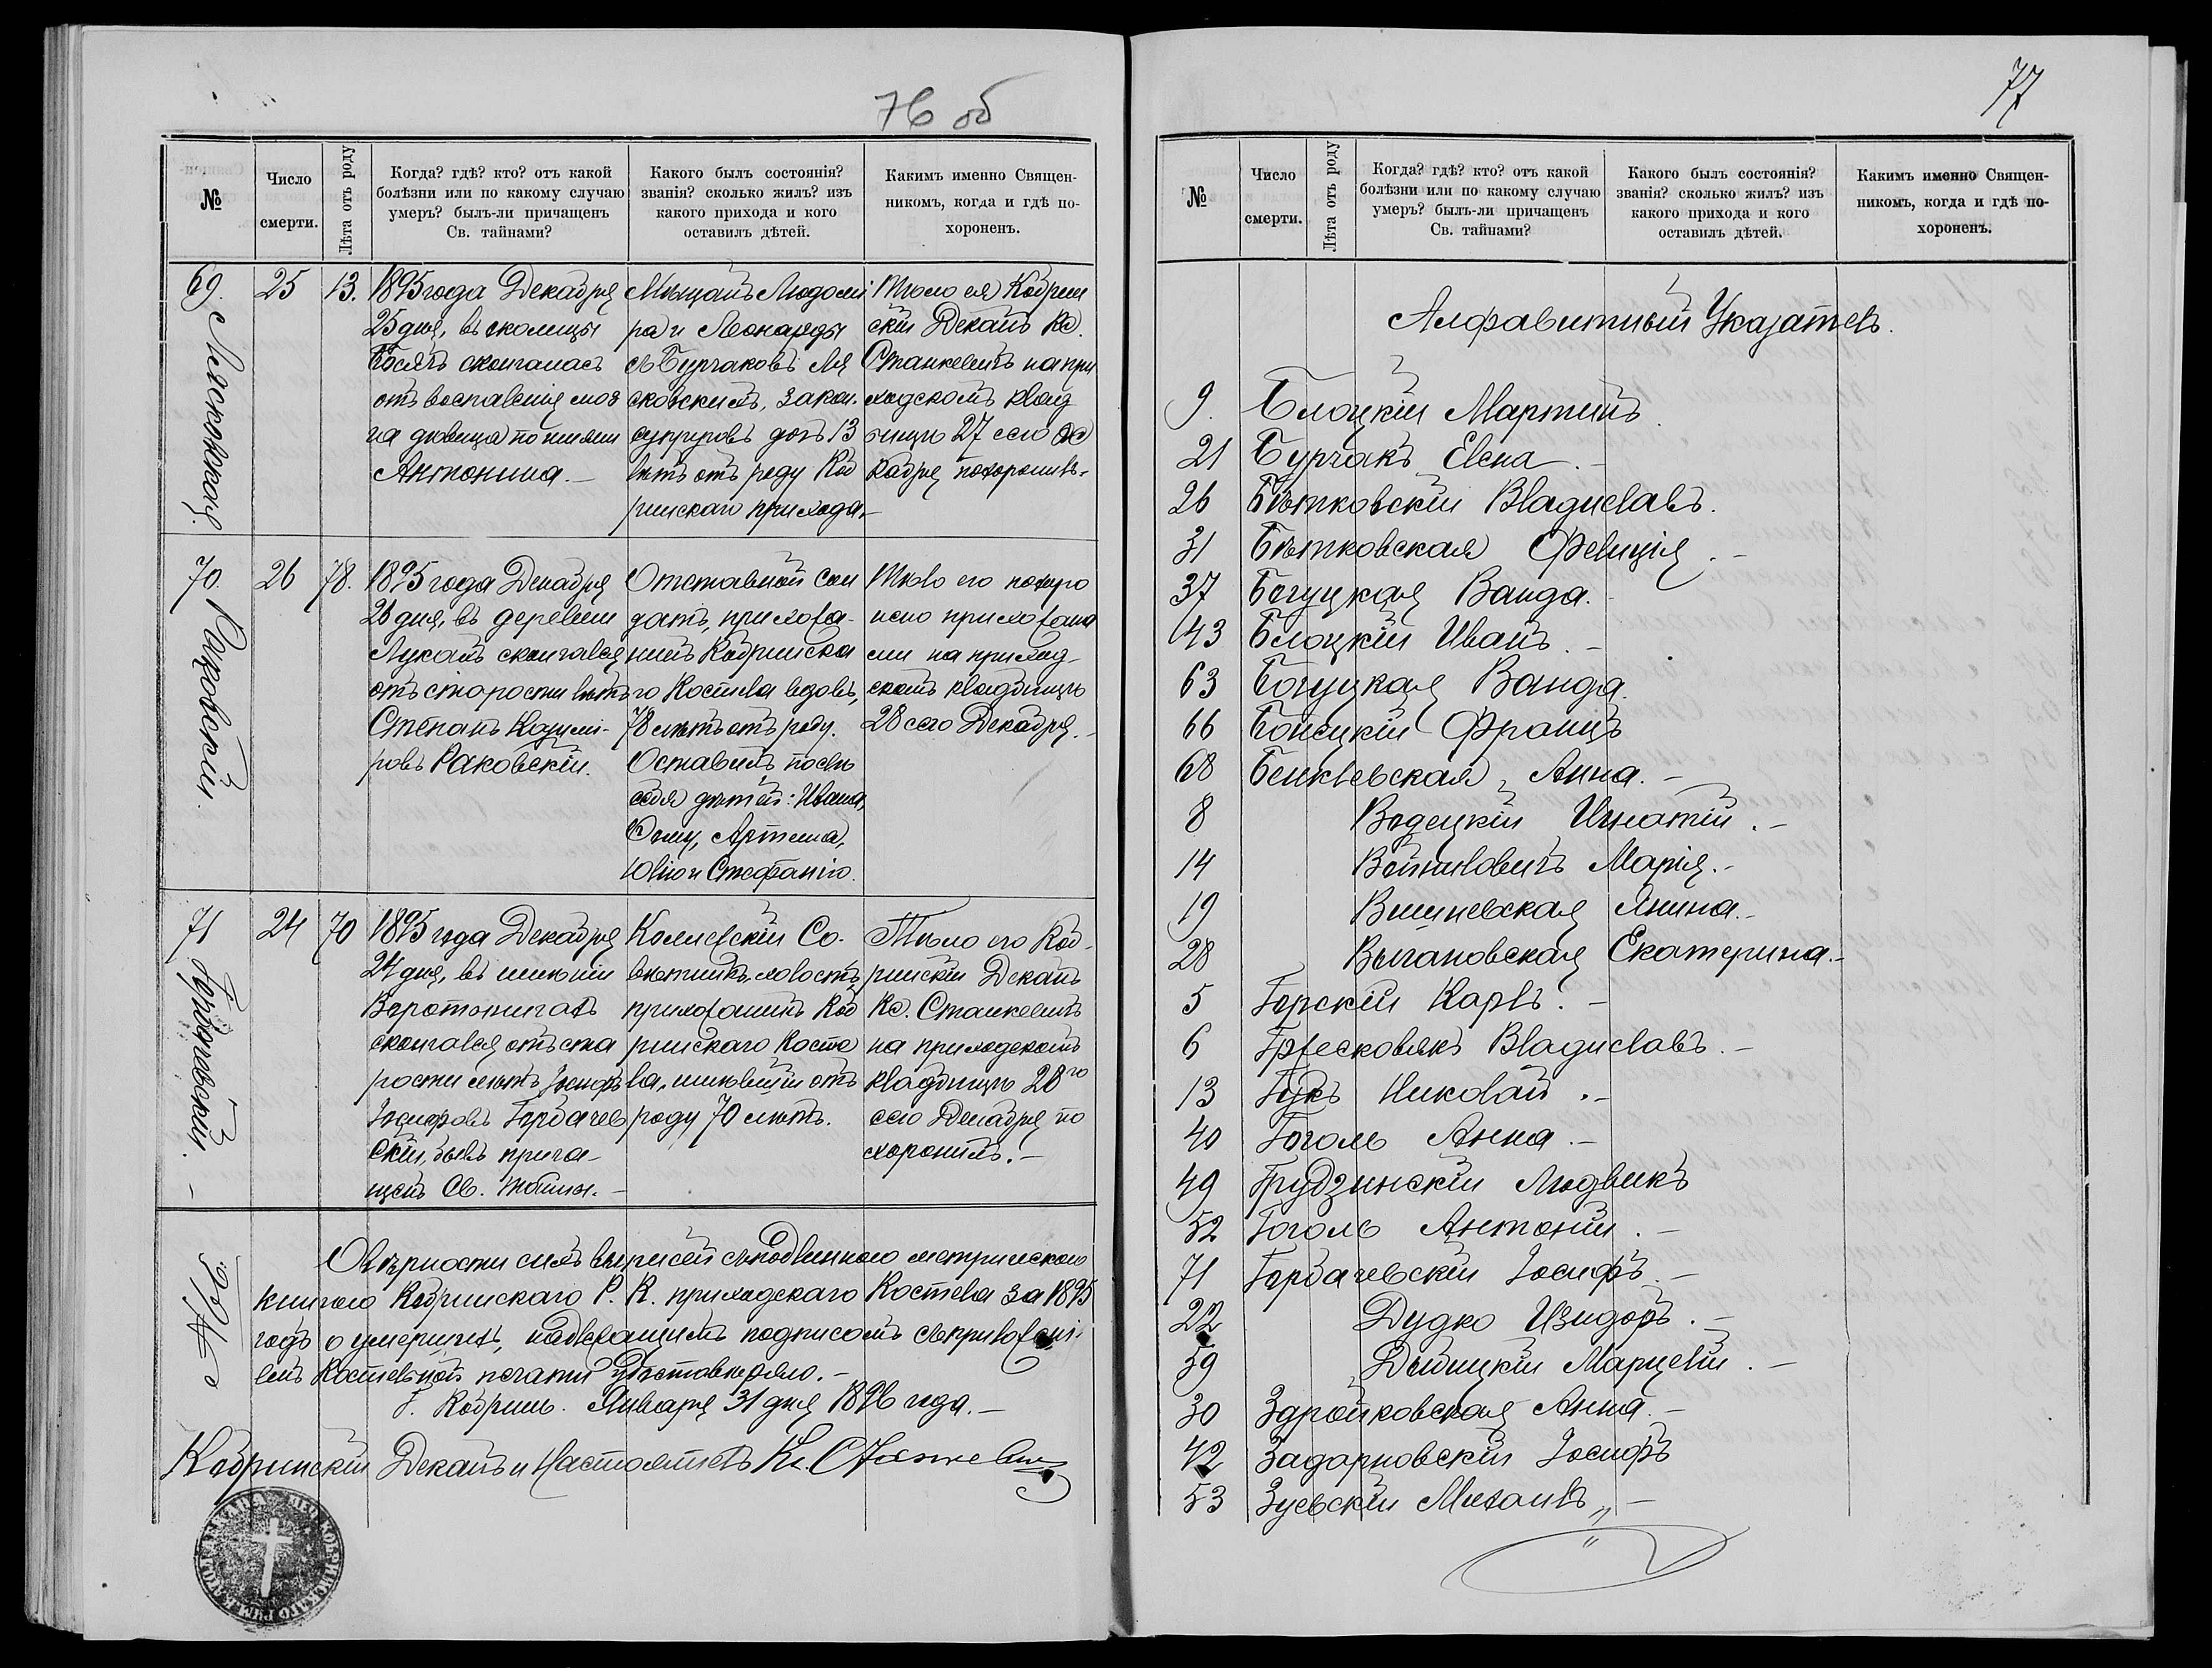 76 об
№
Число
смерти.
Лѣта отъ роду
Когда? гдѣ? кто? отъ какой
болѣзни или по какому случаю
умеръ? былъ-ли причащенъ
Св. тайнами?
Какого былъ состоянія?
званія? сколько жилъ? изъ
какого прихода и кого
оставилъ дѣтей.
Какимъ именно Священ-
никомъ, когда и гдѣ по-
хороненъ.
69.
Лясковская.
25
13.
1895 года Декабря
25 дня, въ околицы
скончалась
отъ воспаленія моз
га дѣвица по имени
Антонина.—
Мѣщанъ Людомі
ра и Леонарды
съ Бурчаковъ Ля
сковскихъ, закон.
супруговъ дочь 13
лѣтъ отъ роду Коб
ринскаго прихода.—
Тѣло ея Кобрин
скій Деканъ Кс.
Станкевичъ на при
ходскомъ клад
бищѣ 27 сего Де
кабря похоронилъ.
70.
Раковскій.
26
78.
1895 года Декабря
26 дня, въ деревни
скончался
отъ старости лѣтъ
Степанъ Казимі-
ровъ Раковскій.
Отставной сол
датъ, прихожа-
нинъ Кобринска
го Костела вдовъ,
78 лѣтъ отъ роду.
Оставилъ послѣ
себя дѣтей: Ивана,
Фому, Артема,
Юлію и Стефанію.
Тѣло его похоро
нено прихожана
ми на приход-
скомъ кладбищѣ
28 сего Декабря.—
71
Горбачевскій.—
24
70
1895 года Декабря
24 дня, въ имѣніи
скончался отъ ста
рости лѣтъ Іосифъ
Іосифовъ Горбачев
скій, бывъ прича-
щенъ Св. тайны.—
Со-
вѣтникъ, холостъ,
прихожанинъ Коб
ринскаго Косте
ла, имѣвшій отъ
роду 70 лѣтъ.
Тѣло его Коб-
ринскій Деканъ
Кс. Станкевичъ
на приходскомъ
кладбищѣ 28го
сего Декабря по
хоронилъ.—
О вѣрности сихъ выписей съ подлинною метрическою
книгою Кобринскаго Р. К. приходскаго Костела за 1895
годъ о умершихъ, надлежащимъ подписомъ съ приложені
емъ Костельной печати удостовѣряю.—
Г. Кобринъ. Января 31 дня 1896 года.—
Кобринскій Деканъ и Настоятель Кс. Станкевичъ
77
№
Число
смерти.
Лѣта отъ роду
Когда? гдѣ? кто? отъ какой
болѣзни или по какому случаю
умеръ? былъ-ли причащенъ
Св. тайнами?
Какого былъ состоянія?
званія? сколько жилъ? изъ
какого прихода и кого
оставилъ дѣтей.
Какимъ именно Священ-
никомъ, когда и гдѣ по-
хороненъ.
Алфавитный Указатель.
9. Блоцкій Мартинъ.
21 Бурчакъ Елена.—
26 Бѣтковскій Владиславъ.
31 Бѣтковская Фелиція.—
37 Богуцкая Ванда.
43 Блоцкій Иванъ.—
63 Богуцкая Ванда.
66 Францъ
68 Бенклевская Анна.—
8 Водецкій Игнатій.—
14 Войниловичъ Марія.—
19 Вишневская Янина.—
28 Выгановская Екатерина.—
5 Горскій Карлъ.—
6 Гржесковякъ Владиславъ.—
13 Гукъ Николай.—
40 Гоголь Анна.—
49 Грудзинскій Людвикъ
52 Гоголь Антоній.—
71 Горбачевскій Іосифъ.—
22 Дудко Изидоръ.—
59 Марцелій.—
30 Здройковская Анна.—
42 Задарновскій Іосифъ
53 Зуевскій Михаилъ„—